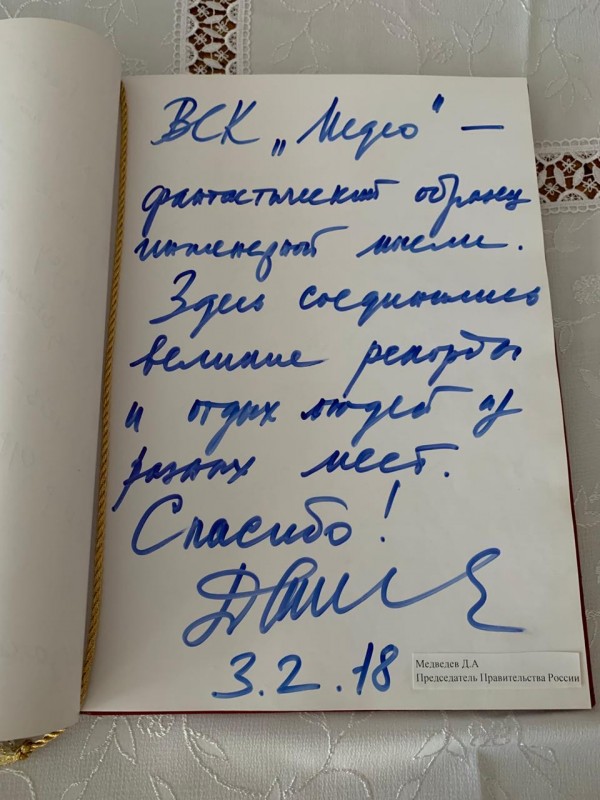 ВСК „Медео" —
фантастический образец
инженерной мысли.
Здесь соединились
великие рекорды
и отдых людей из
разных мест.
Спасибо!
3.2.18
Медведев Д.А
Председатель Правительства России